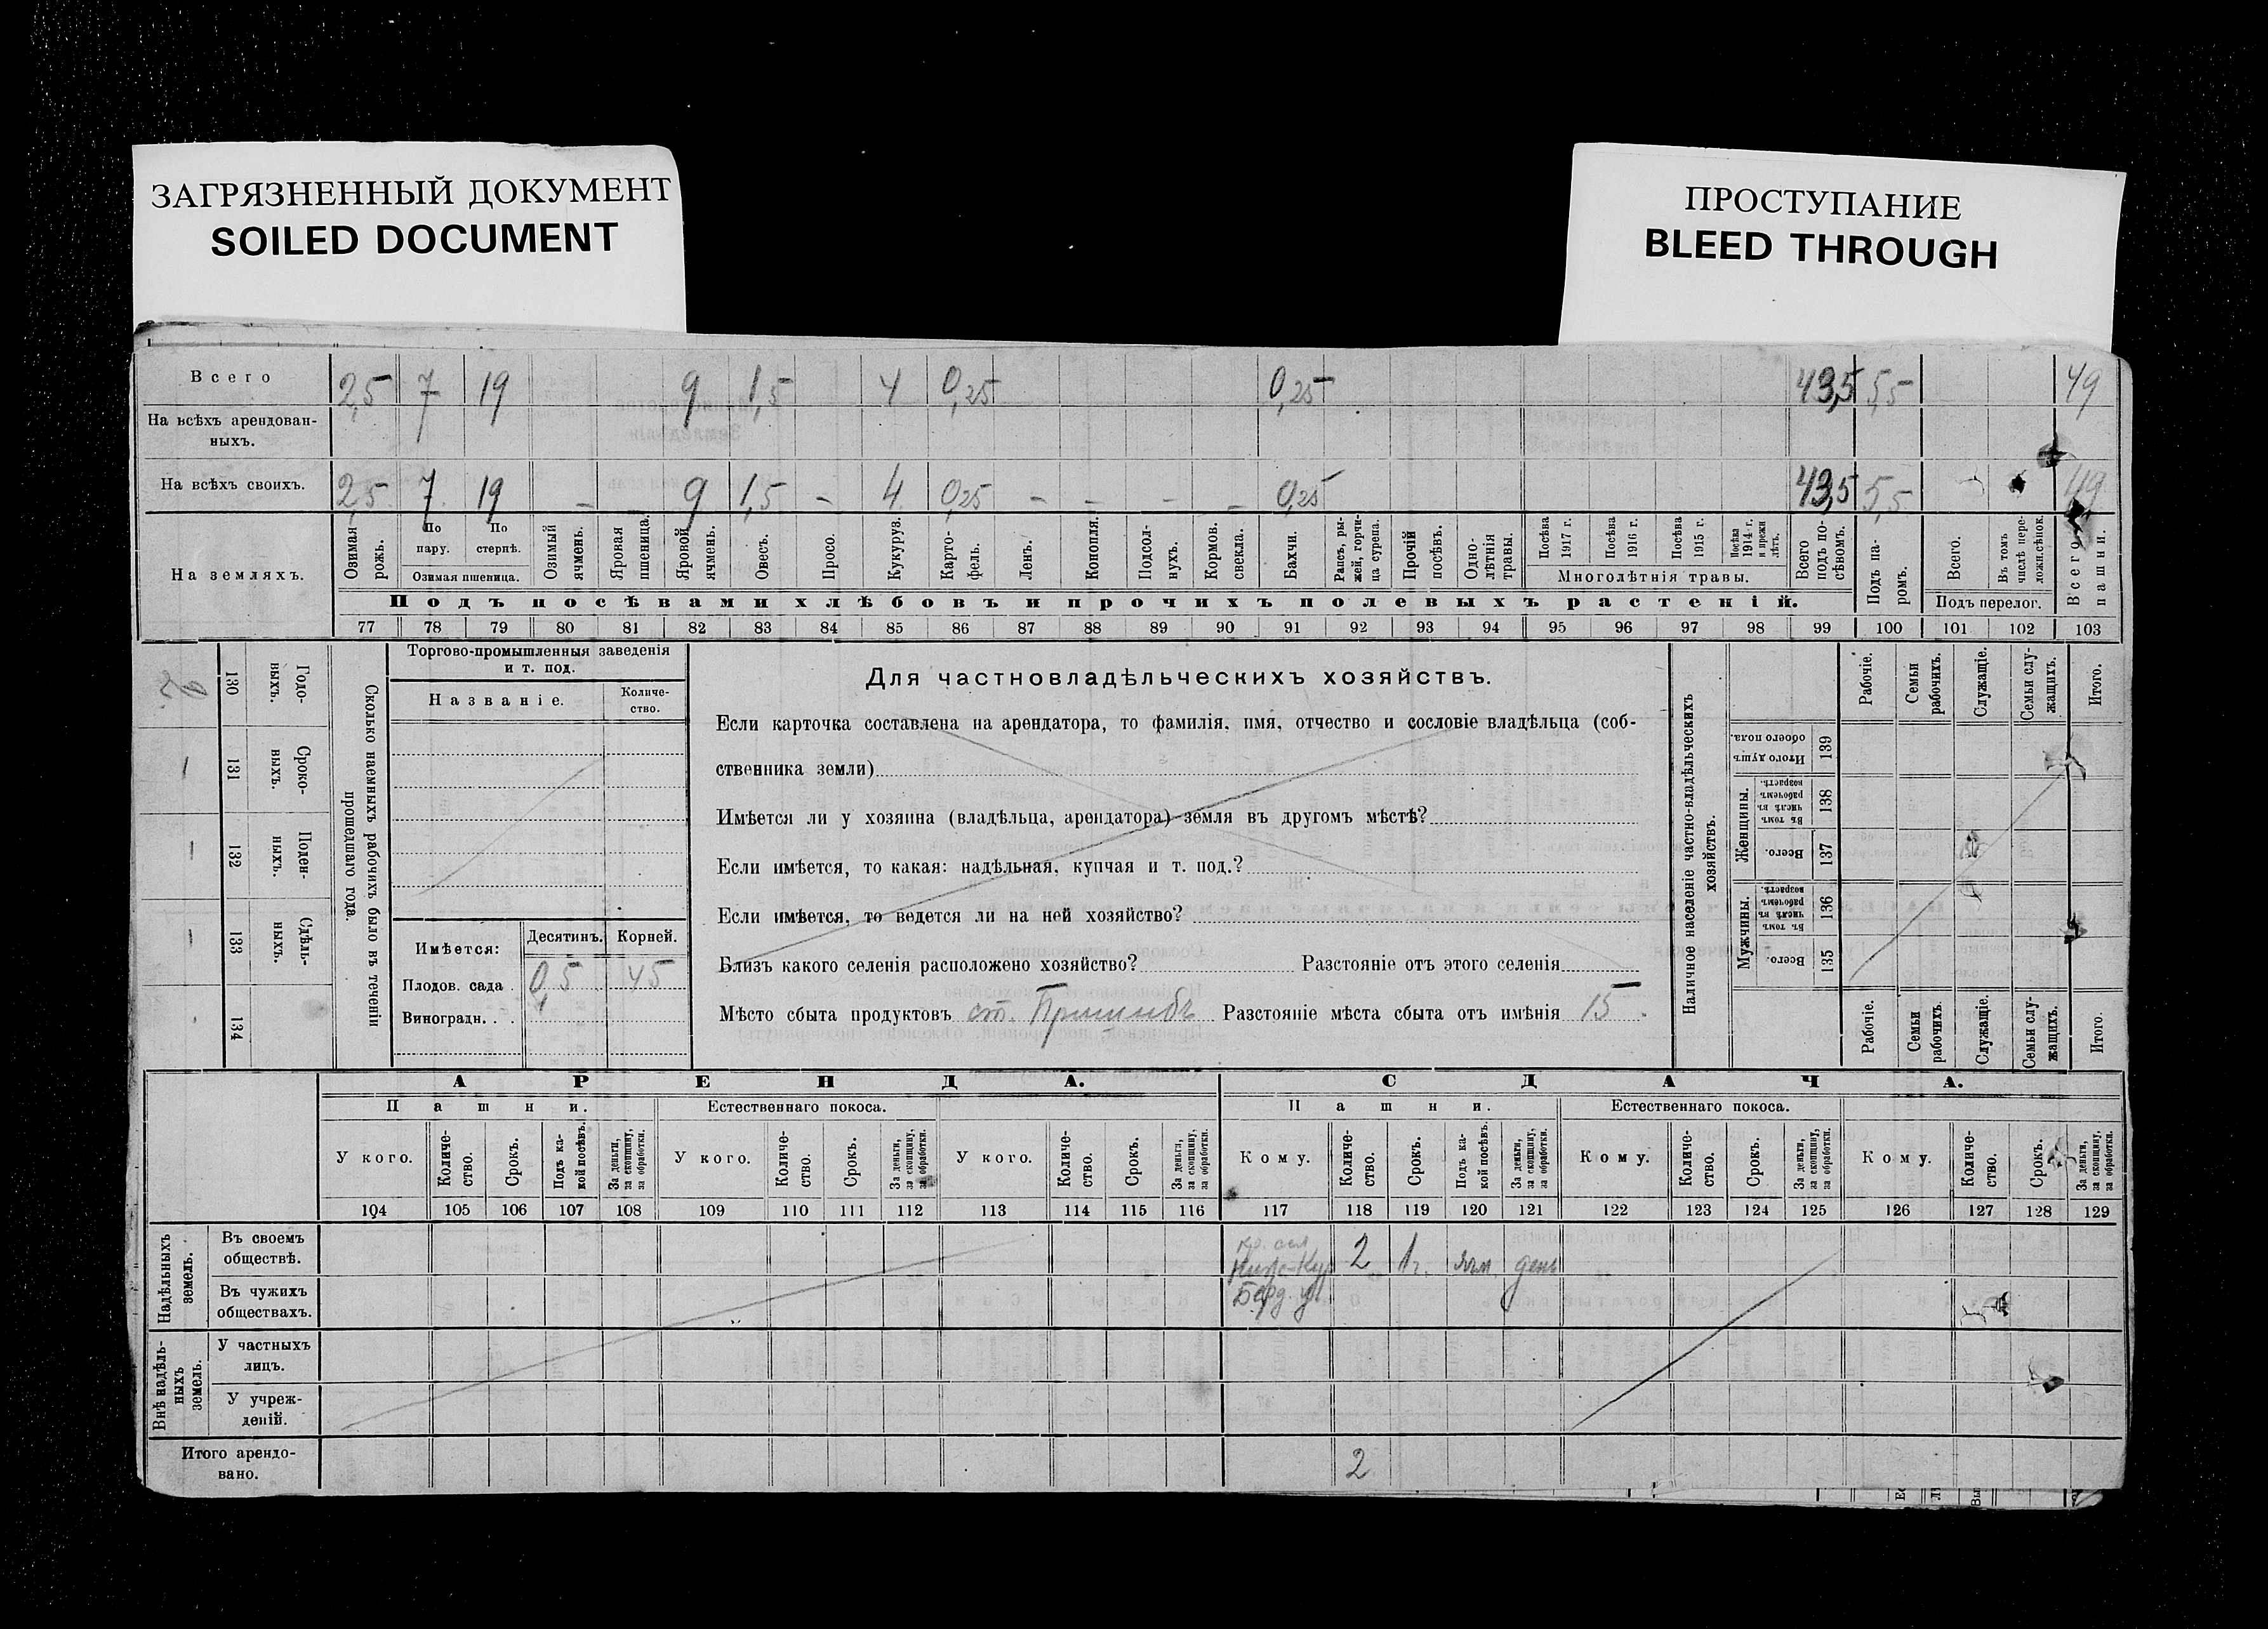 ЗАГРЯЗНЕННЫЙ ДОКУМЕНТ
SOILED DOCUMENT
ПРОСТУПАНИЕ
BLEED THROUGH
Всего 2,5 7 19 9 1,5 4 0,25 0,25 43,5 5,5 49
На всѣхъ арендован-
ныхъ.
На всѣхъ своихъ. 2,5 7 19 – 9 1,5 – 4 0,25 – – – – 0,25 43,5 5,5 49
На земляхъ.
Озимая рожь.
По пару.
По стернѣ.
Озимая пшеница.
Озимый ячмень.
Яровая пшеница.
Яровой ячмень.
Овесъ.
Просо.
Кукуруз.
Карто-
фель.
Ленъ.
Конопля.
Подсол-
нухъ.
Кормов. свекла.
Бахчи.
Рапсъ, ры-
жей, горчи-
ца сурепа.
Прочій посѣвъ.
Одно-
лѣтнія травы.
Посѣва 1917 г.
Посѣва 1916 г.
Посѣва 1915 г.
Посѣва 1914 г. и прежн лѣтъ.
Многолѣтнія травы.
Всего подъ по-
сѣвомъ.
Подъ па-
ромъ.
Всего.
Въ томъ числѣ пере-
ложн.сѣнок.
Подъ перелог.
Всего пашни.
Подъ посѣвами хлѣбовъ и прочихъ полевыхъ растеній.
77 78 79 80 81 82 83 84 85 86 87 88 89 90 91 92 93 94 95 96 97 98 99 100 101 102 103
Сколько наемныхъ рабочихъ было въ теченіи
прошедшаго года.
Годо-
выхъ.
130
Сроко-
ныхъ.
131
Поден-
ныхъ.
132
Сдѣль-
ныхъ.
133
134
Торгово-промышленныя заведенія
и т. под.
Названіе.
Количе-
ство.
Имѣется: Десятинъ. Корней.
Плодов. сада . 0,5 45
Виноградн. . .
Для частновладѣльческихъ хозяйствъ.
Если карточка составлена на арендатора, то фамилія, имя, отчество и сословіе владѣльца (соб-
ственника земли)
Имѣется ли у хозяина (владѣльца, арендатора) земля въ другомъ мѣстѣ?
Если имѣется, то какая: надѣльная, купчая и т. под.?
Если имѣется, то ведется ли на ней хозяйство?
Близъ какого селенія расположено хозяйство? Разстояніе отъ этого селенія
Мѣсто сбыта продуктовъ ст. Пришибъ Разстояніе мѣста сбыта отъ имѣнія 15.
Наличное населеніе частно-владѣльческихъ
хозяйствъ.
Рабочіе.
Семьи рабочихъ.
Служащіе.
Семьи слу-
жащихъ.
Итого.
Итого душъ обоего пола.
139
Женщины.
Въ томъ числѣ въ рабочемъ возрастѣ.
138
Всего.
137
Мужчины.
Въ томъ числѣ въ рабочемъ возрастѣ.
136
Всего.
135
Рабочіе.
Семьи рабочихъ.
Служащіе.
Семьи слу-
жащихъ.
Итого.
АРЕНДА. СДАЧА.
Пашни. Естественнаго покоса. Пашни. Естественнаго покоса.
У кого.
Количе-
ство.
Срокъ.
Подъ ка-
кой посѣвъ.
За деньги, за скопщину, за обработки.
У кого.
Количе-
ство.
Срокъ.
За деньги, за скопщину, за обработки.
У кого.
Количе-
ство.
Срокъ.
За деньги, за скопщину, за обработки.
Кому.
Количе-
ство.
Срокъ.
Подъ ка-
кой посѣвъ.
За деньги, за скопщину, за обработки.
Кому.
Количе-
ство.
Срокъ.
За деньги, за скопщину, за обработки.
Кому.
Количе-
ство.
Срокъ.
За деньги, за скопщину, за обработки.
104 105 106 107 108 109 110 111 112 113 114 115 116 117 118 119 120 121 122 123 124 125 126 127 128 129
Надѣльныхъ земель.
Въ своемъ
обществѣ.
2 1 г. ячм. день
Въ чужихъ
обществахъ.
Берд. у.
Внѣ надѣль-
ныхъ земель.
У частныхъ
лицъ.
У учреж-
деній.
Итого арендо-
вано. 2